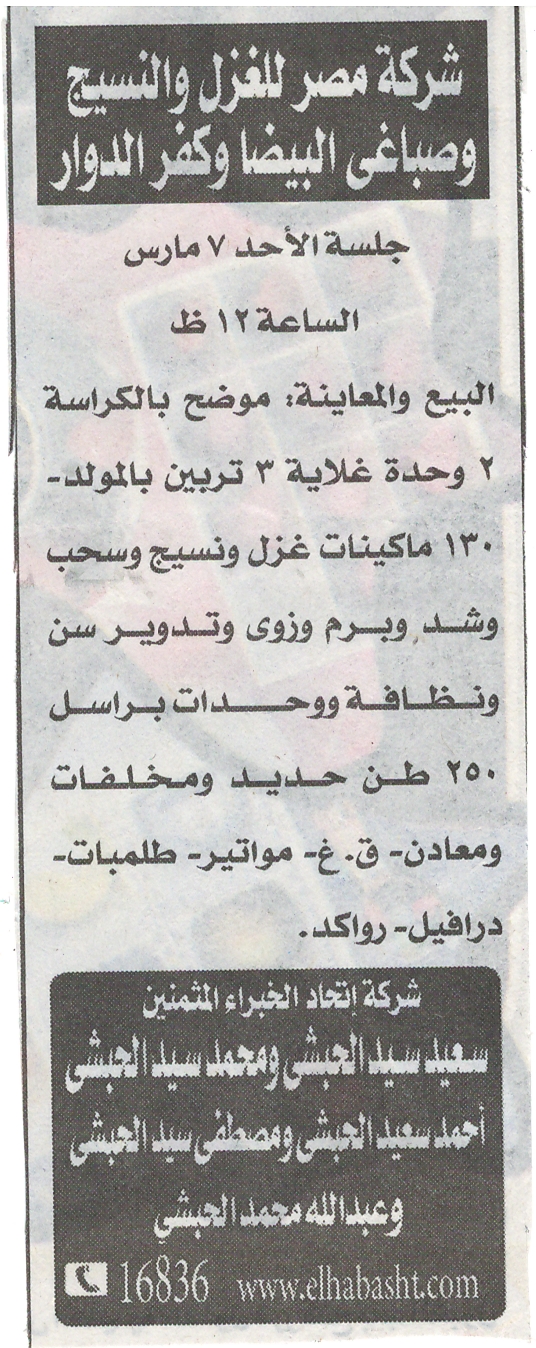 شركة مصر للغزل والنسيج
وصباغى البيضا وكفر الدوار
جلسة الأحد ٧ مارس
الساعة ١٢ ظ
البيع والمعاينة: موضح بالكراسة
٢ وحدة غلاية ٣ تربين بالمولد-
١٣٠ ماكينات غزل ونسيج وسحب
وشد وبرم وزوى وتدوير سن
ونظافة ووحدات براسل
٢٥٠ طن حديد ومخلفات
ومعادن- ق. غ- مواتير- طلمبات-
درافيل- رواكد.
شركة إتحاد الخبراء المثمنين
سعيد سيد الحبشى ومحمد سيد الحبشى
أحمد سعيد الحبشى ومصطفى سيد الحبشى
وعبدالله محمد الحبشي
16836 www.elhabasht.com